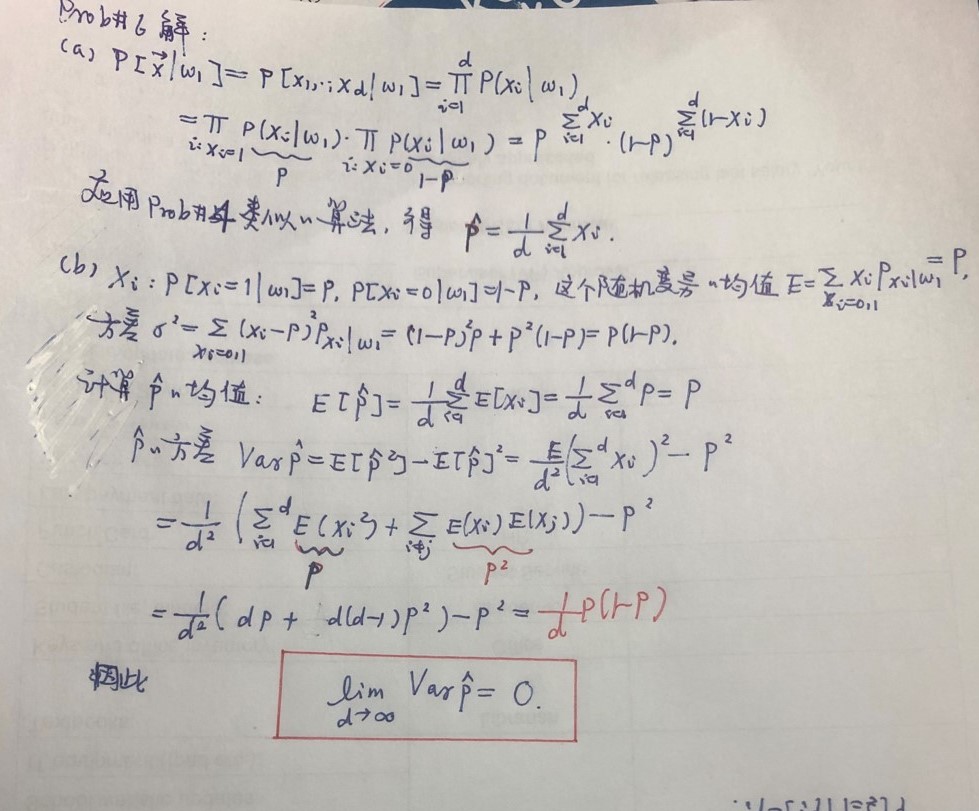 Prob#6 解:
(a) P[x⃗|ω₁] = P[x₁,…,x_d|ω₁] = ∏_{i=1}^{d} P(x_i|ω₁)
= ∏_{i:x_i=1} P(x_i|ω₁) · ∏_{i:x_i=0} P(x_i|ω₁) = P^{∑_{i=1}^{d} x_i} · (1-P)^{∑_{i=1}^{d} (1-x_i)}
P 1-P
应用 Prob#4 类似的算法, 得 p̂ = 1/d ∑_{i=1}^{d} x_i.
(b) x_i : P[x_i=1|ω₁]=P, P[x_i=0|ω₁]=1-P, 这个随机变号的均值 E = ∑_{x_i=0,1} x_i P_{x_i|ω₁} = P,
方差 σ² = ∑_{x_i=0,1} (x_i-P)² P_{x_i|ω₁} = (1-P)²P + P²(1-P) = P(1-P).
计算 p̂ 的均值: E[p̂] = 1/d ∑_{i=1}^{d} E[x_i] = 1/d ∑_{i=1}^{d} P = P
p̂ 的方差 Var p̂ = E[p̂²] - E[p̂]² = E/d² (∑_{i=1}^{d} x_i)² - P²
= 1/d² (∑_{i=1}^{d} E(x_i²) + ∑_{i≠j} E(x_i)E(x_j)) - P²
P P²
= 1/d² (dP + d(d-1)P²) - P² = 1/d P(1-P)
因此
lim_{d→∞} Var p̂ = 0.